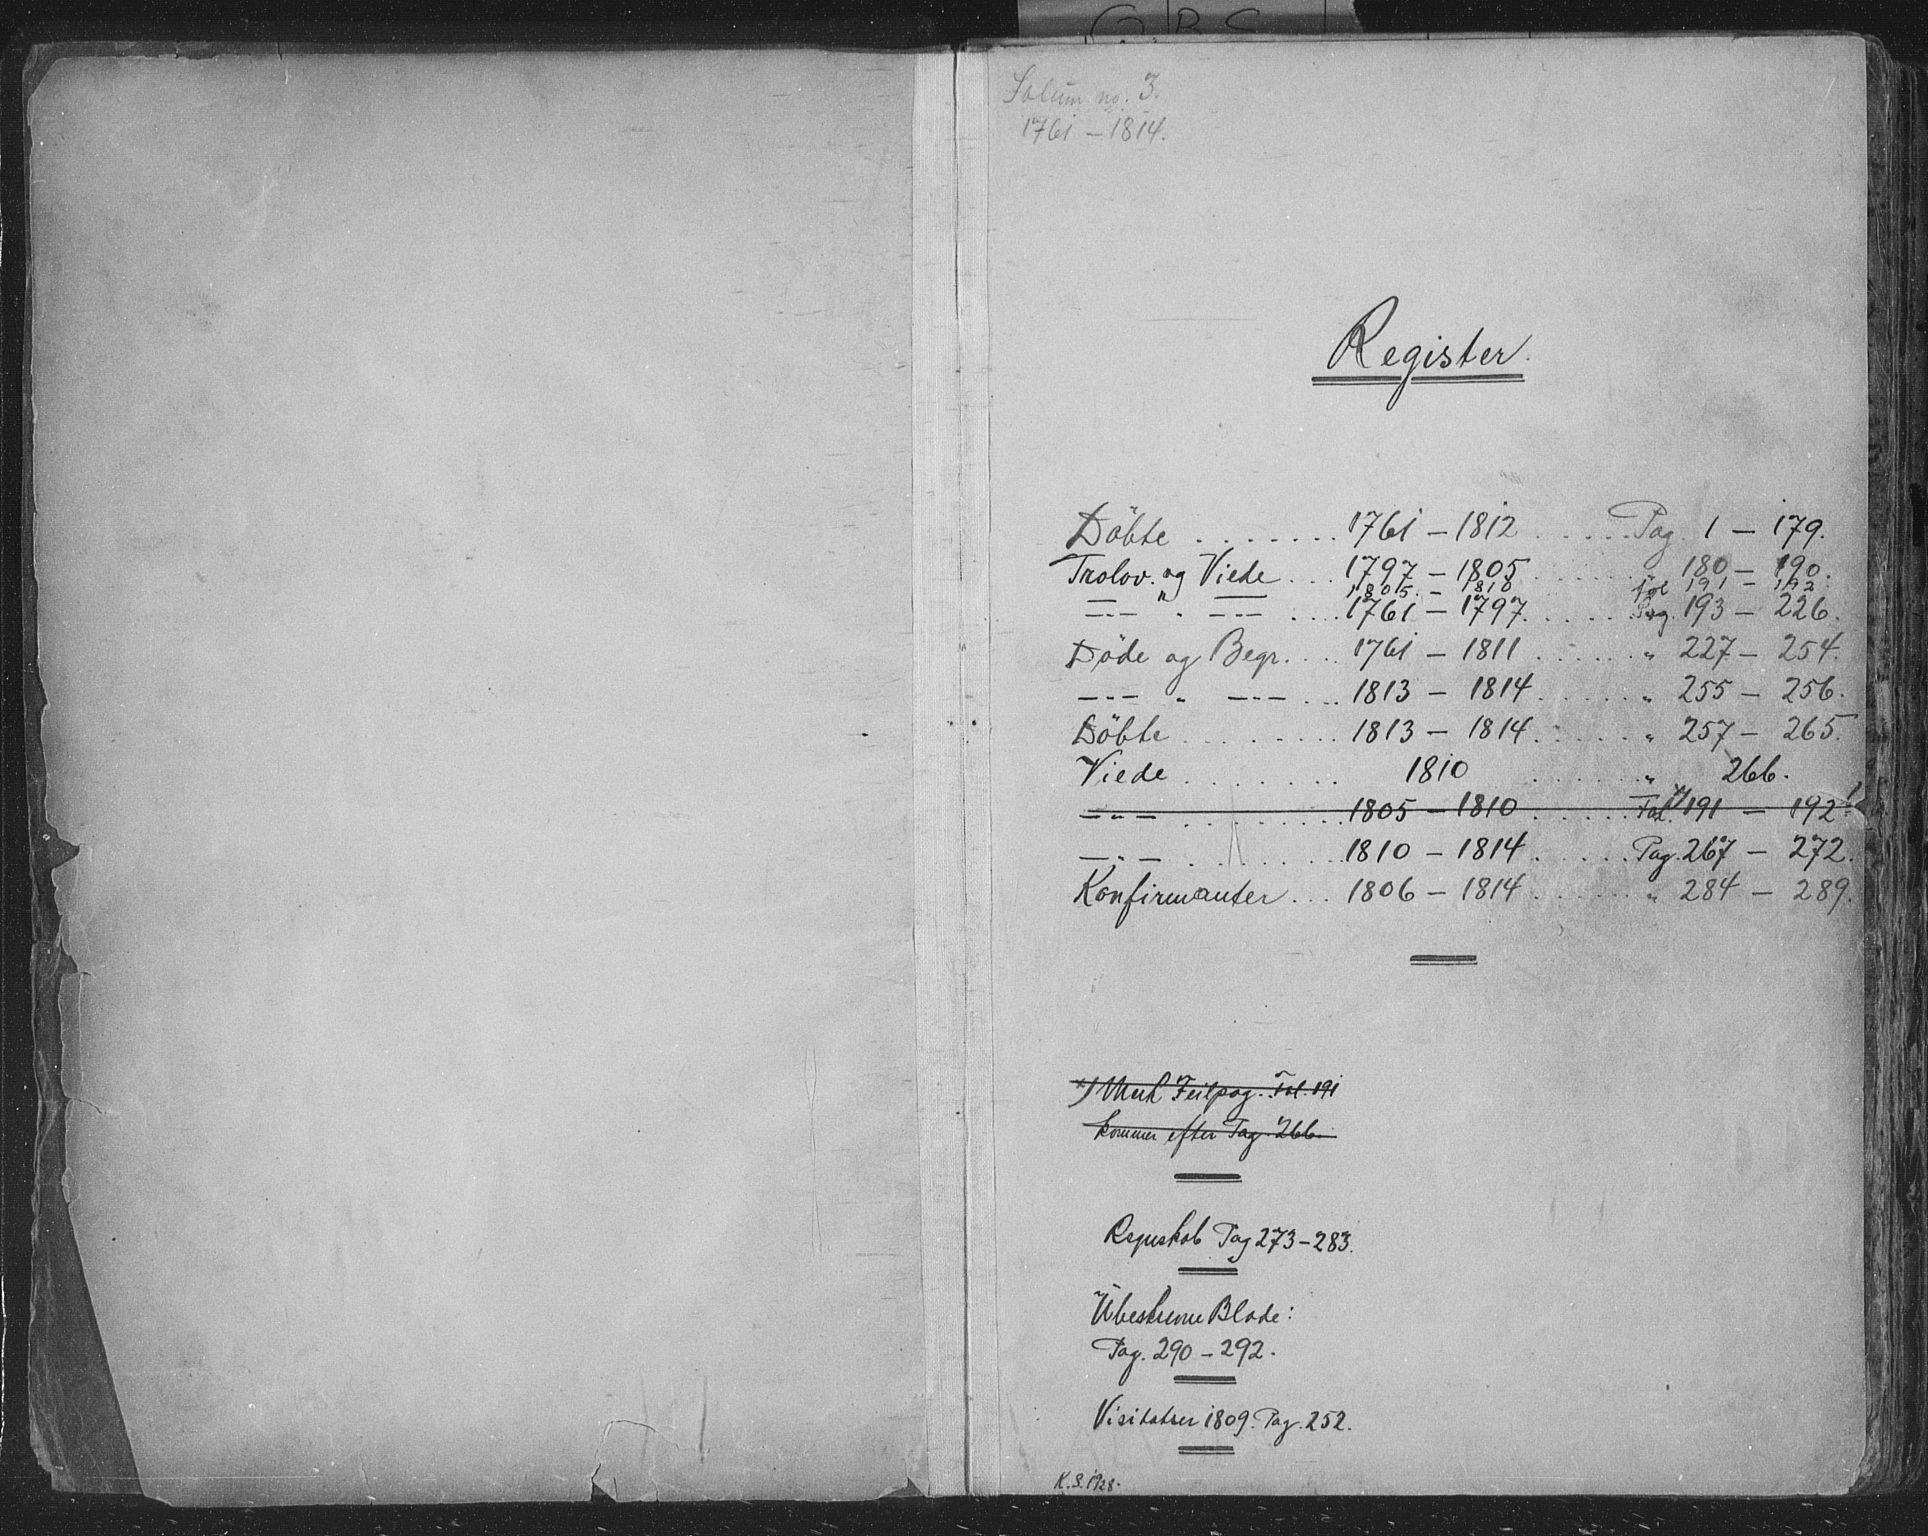 Solum no. 3.
1761 – 1814.
Register.
Döbte ....... 1761 – 1812 ...... Pag. 1 – 179.
Trolov. og Viede ... 1797 – 1805 ...... " 180 – 190.
— " — 1805. – 1810 fol 191 – 192
—"— " —"— .... 1761 – 1797. ..... Pag. 193 – 226.
Döde og Begr. ... 1761 – 1811 ...... " 227 – 254.
—"— " —"— ... 1813 – 1814. ..... " 255 – 256.
Döbte ........ 1813 – 1814. ..... " 257 – 265.
Viede ....... 1810 ...... " 266.
—"— ........ 1805 – 1810 ..... Fol. 191 – 192
—"— ....... 1810 – 1814 ..... Pag. 267 – 272.
Konfirmanter ... 1806 – 1814 ...... " 284 – 289.
x) Merk Feilpag. Fol. 191
kommer efter Pag. 266.
Regnskab Pag 273–283.
Ubeskrevne Blade:
Pag. 290 – 292.
Visitatser 1809. Pag. 252.
K. S. 1928.